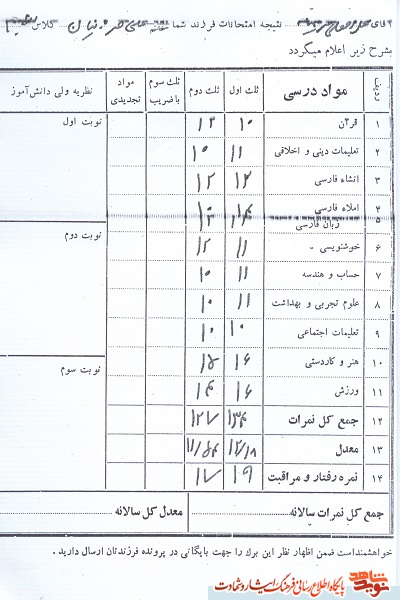 آقای نتیجه امتحانات فرزند شما کلاس
بشرح زیر اعلام میگردد
ردیف مواد درسی ثلث اول ثلث دوم ثلث سوم با ضریب مواد تجدیدی نظریه ولی دانش‌آموز
۱ قرآن ۱۰ ۱۲ نوبت اول
۲ تعلیمات دینی و اخلاقی ۱۱ ۱۰
۳ انشاء فارسی ۱۲ ۱۲
۴ املاء فارسی ۱۰
۵ زبان فارسی
۶ خوشنویسی ۱۱ ۱۲ نوبت دوم
۷ حساب و هندسه ۱۱ ۱۰
۸ علوم تجربی و بهداشت ۱۱ ۱۰
۹ تعلیمات اجتماعی ۱۰ ۱۰
۱۰ هنر و کاردستی ۱۶ ۱۵ نوبت سوم
۱۱ ورزش ۱۶ ۱۴
۱۲ جمع کل نمرات ۱۳۴ ۱۲۷
۱۳ معدل ۱۲/۱۸ ۱۱/۵۴
۱۴ نمره رفتار و مراقبت ۱۹ ۱۷
جمع کل نمرات سالانه معدل کل سالانه
خواهشمنداست ضمن اظهار نظر این برك را جهت بایگانی در پرونده فرزندتان ارسال دارید .
نوید شاهد پایگاه اطلاع رسانی فرهنگ ایثار و شهادت